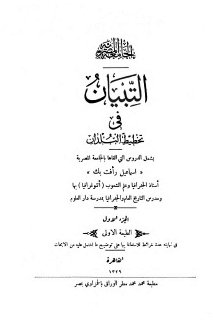 الجامعة المصرية
التبيان
في
تخطيط البلدان
يشمل الدروس التي القاها بالجامعة المصرية
« اسماعيل رأفت بك »
أستاذ الجغرافيا وعلم الشعوب ( أثنوغرافيا ) بها
ومدرس التاريخ العام والجغرافيا بمدرسة دار العلوم
الجزء الاول
الطبعة الاولى
في نهايته عدة خرائط للاستعانة بها على توضيح ما اشتمل عليه من الابحاث
القاهرة
١٣٢٩
مطبعة محمد محمد مطر الوراق بالحمزاوي بمصر